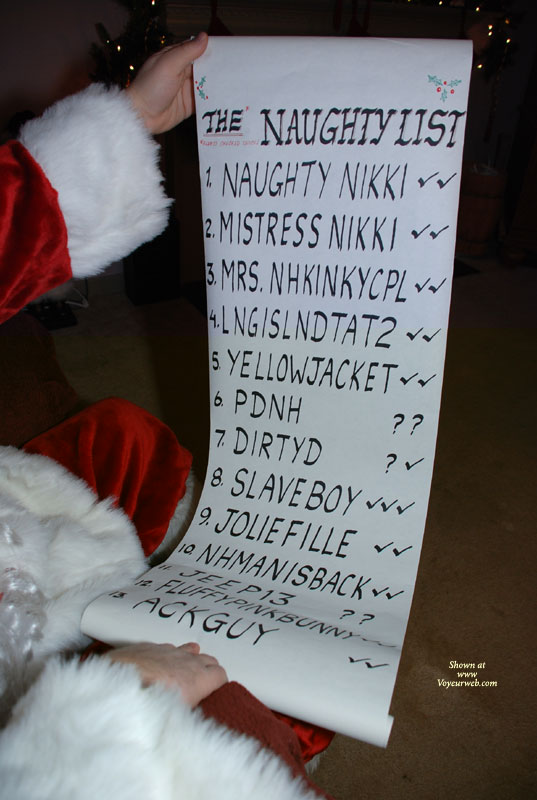 THE NAUGHTY LIST
1. NAUGHTY NIKKI ✓✓
2. MISTRESS NIKKI ✓✓
3. MRS. NHKINKYCPL ✓✓
4. LNGISLNDTAT2 ✓✓
5. YELLOWJACKET ✓✓
6. PDNH ??
7. DIRTYD ?✓
8. SLAVEBOY ✓✓✓
9. JOLIEFILLE ✓✓
10. NHMANISBACK ✓✓
11. JEEP13 ??
12. FLUFFYPINKBUNNY ✓✓
13. ACKGUY ✓✓
Shown at
www
Voyeurweb.com